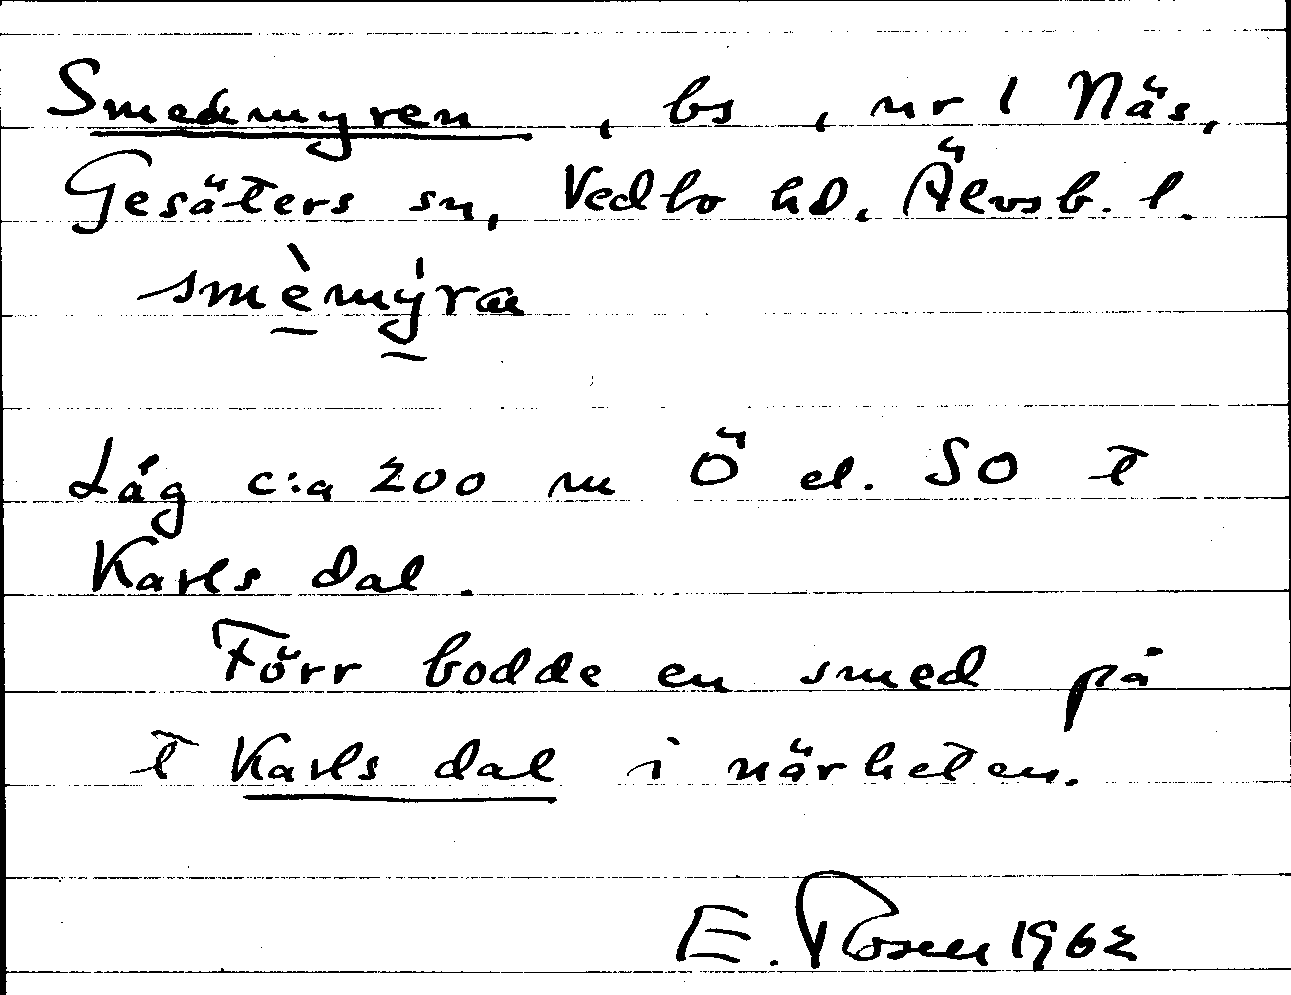 Smedmyren, bs, nr 1 Näs,
Gesäters sn, Vedbo hd. Älvsb. l.
smèmýra
Låg c:a 200 m Ö el. SO t
Karls dal.
Förr bodde en smed på
t Karls dal i närheten.
E. Rosen 1962